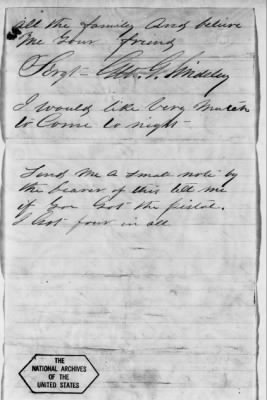 all the family And beleive
Me Your friend
Sergt G. Lindsley
I would like Very Mutch
to Come to night
Send Me a Small note by
the bearer of this let me
if You Got the pistol.
I Got four in all
THE
NATIONAL ARCHIVES
OF THE
UNITED STATES